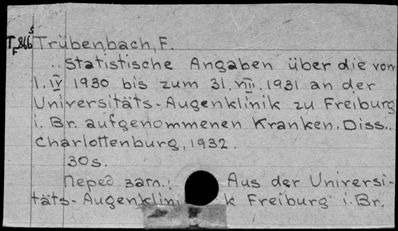 T 866 Trübenbach, F.
..Statistische Angaben über die vom
1. IV 1930 bis zum 31. VIII. 1931 an der
Universitäts-Augenklinik zu Freiburg
i. Br. aufgenommenen Kranken. Diss..
Charlottenburg, 1932.
30s.
Перед загл.: Aus der Universi-
täts-Augenklinik Freiburg i. Br.